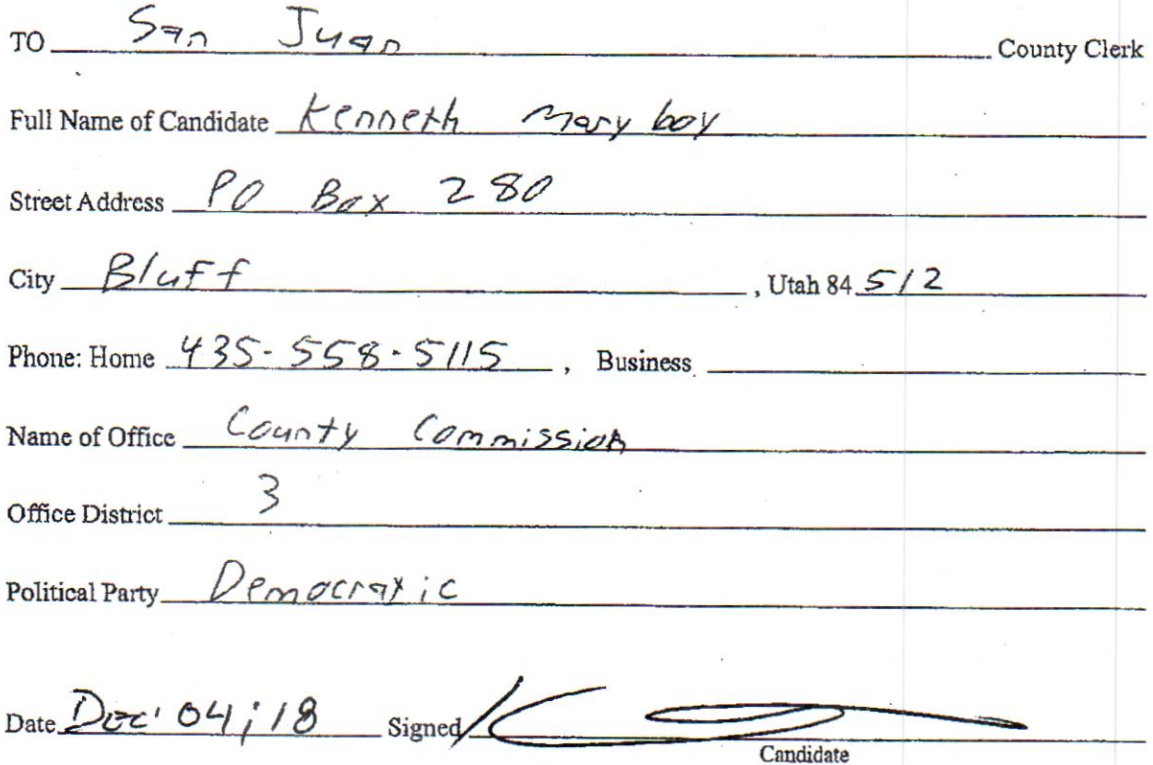 TO San Juan County Clerk
Full Name of Candidate Kenneth Maryboy
Street Address PO Box 280
City Bluff , Utah 84 512
Phone: Home 435-558-5115 , Business
Name of Office County Commission
Office District 3
Political Party Democratic
Date Dec' 04, 18 Signed
Candidate